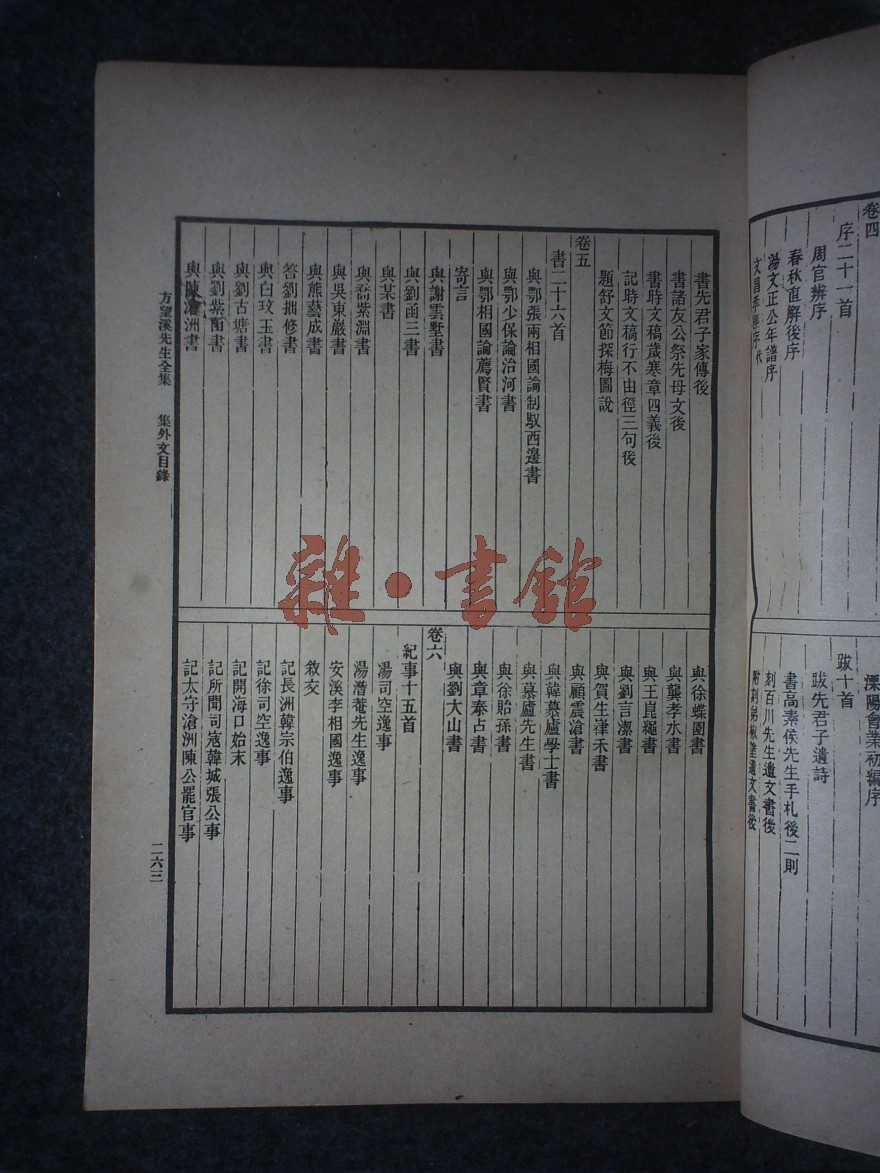 卷四
序二十一首
周官辨序
春秋直解後序
湯文正公年譜序
文昌孝經序代
溧陽會業初編序
跋十首
跋先君子遺詩
書高素侯先生手札後二則
刻百川先生遺文書後
遺文書後
書先君子家傳後
書諸友公祭先母文後
書時文稿歲寒章四義後
記時文稿行不由徑三句後
題舒文節探梅圖說
卷五
書二十六首
與鄂張兩相國論制馭西邊書
與鄂少保論治河書
與鄂相國論薦賢書
寄言
與謝雲墅書
與劉函三書
與某書
與喬紫淵書
與吳東巖書
與熊藝成書
答劉拙修書
與白玫玉書
與劉古塘書
與劉紫函書
與陳滄洲書
與徐蝶園書
與龔孝水書
與王崑繩書
與劉言潔書
與賀生嵂禾書
與顧震滄書
與韓慕廬學士書
與慕廬先生書
與徐貽孫書
與章泰占書
與劉大山書
卷六
紀事十五首
湯司空逸事
湯潛菴先生逸事
安溪李相國逸事
敘交
記長洲韓宗伯逸事
記徐司空逸事
記開海口始末
記所聞司寇韓城張公事
記太守滄洲陳公罷官事
方望溪先生全集 集外文目錄
二六三
雜·書館